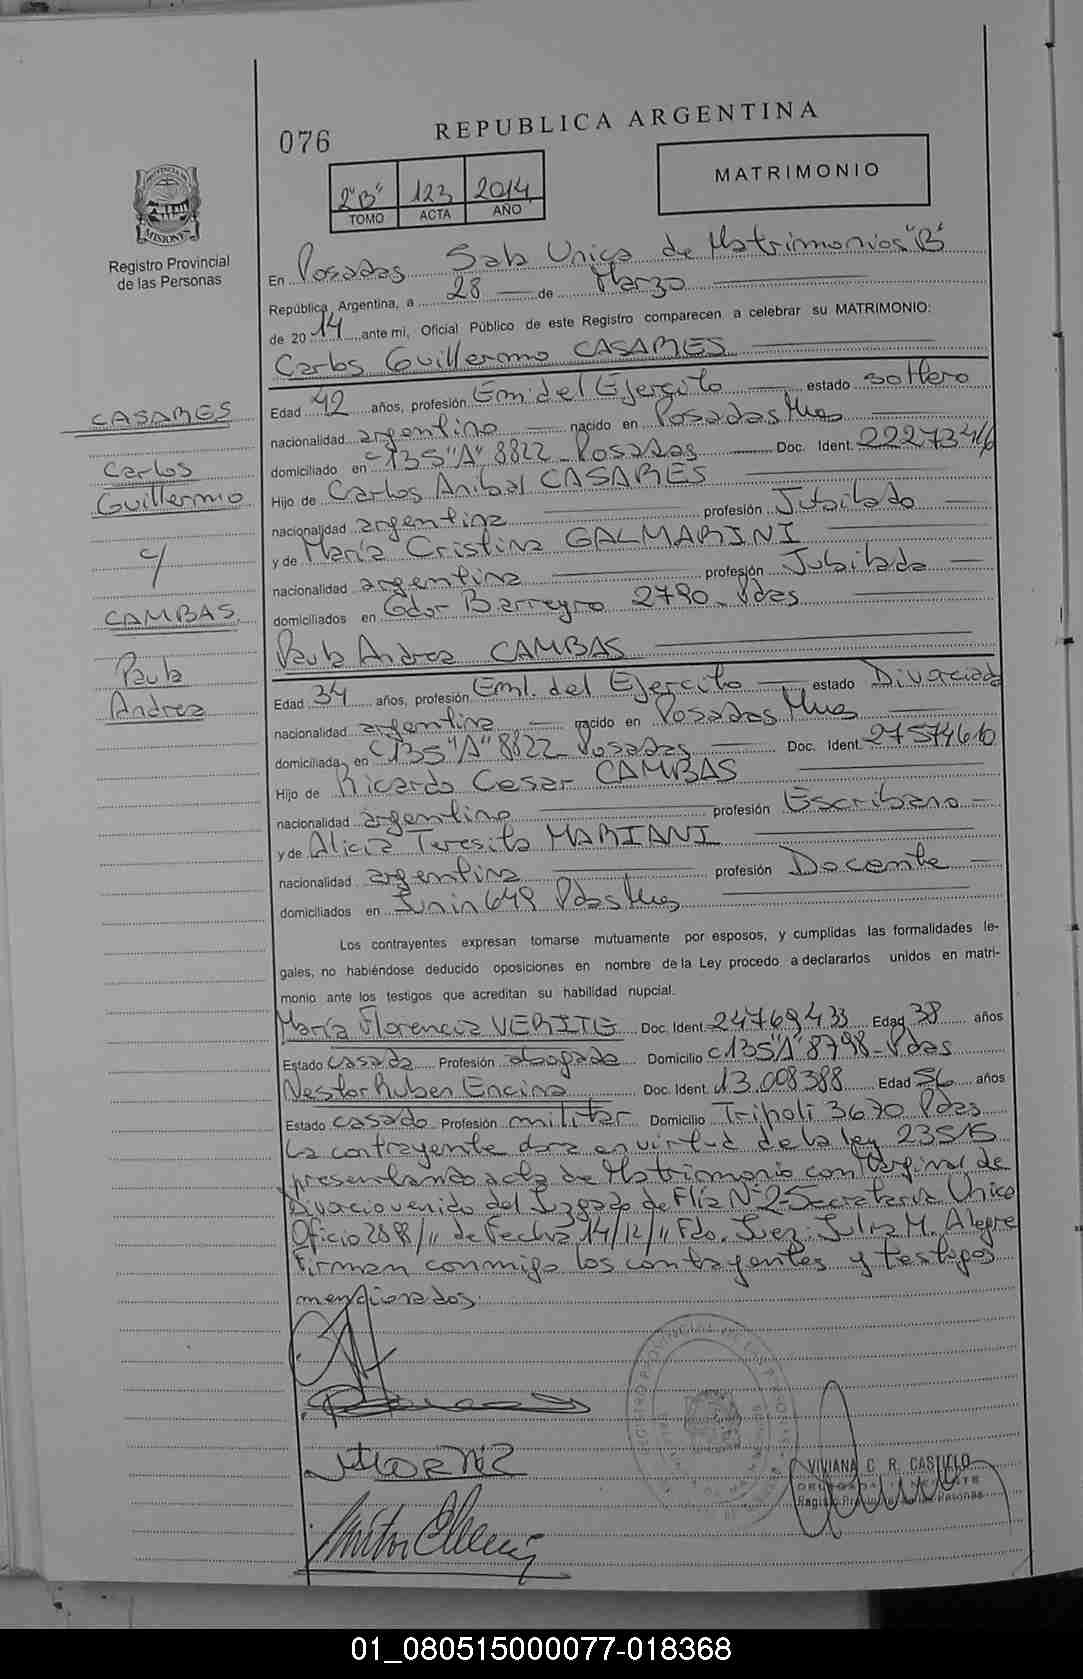 076
REPUBLICA ARGENTINA
2"B" 123 2014
TOMO ACTA AÑO
MATRIMONIO
PROVINCIA DE MISIONES
Registro Provincial
de las Personas
En Posadas Sala Unica de Matrimonios "B"
República Argentina, a 28 de Marzo
de 2014 ante mi, Oficial Público de este Registro comparecen a celebrar su MATRIMONIO:
Carlos Guillermo CASARES
Edad 42 años, profesión Eml del Ejercito estado soltero
nacionalidad argentino nacido en Posadas Mnes
domiciliado en C 135 "A" 8822 - Posadas Doc. Ident. 22273416
Hijo de Carlos Anibal CASARES
nacionalidad argentina profesión Jubilado
y de María Cristina GALMARINI
nacionalidad argentina profesión Jubilada
domiciliados en Gdor Barreyro 2790 - Pdas
Paula Andrea CAMBAS
Edad 34 años, profesión Eml. del Ejercito estado Divorciada
nacionalidad argentina nacido en Posadas Mnes
domiciliada en C 135 "A" 8822 - Posadas Doc. Ident. 27574610
Hijo de Ricardo Cesar CAMBAS
nacionalidad argentino profesión Escribano
y de Alicia Teresita MARIANI
nacionalidad argentina profesión Docente
domiciliados en Junin 649 Pdas Mnes
CASARES
Carlos
Guillermo
c/
CAMBAS
Paula
Andrea
Los contrayentes expresan tomarse mutuamente por esposos, y cumplidas las formalidades le-
gales, no habiéndose deducido oposiciones en nombre de la Ley procedo a declararlos unidos en matri-
monio ante los testigos que acreditan su habilidad nupcial.
María Florencia VERITE Doc. Ident. 24769433 Edad 38 años
Estado casada Profesión abogada Domicilio C 135 "A" 8798 - Pdas
Nestor Ruben Encina Doc. Ident. 13.008388 Edad 56 años
Estado casado Profesión militar Domicilio Tripoli 3670 Pdas
La contrayente divorciada en virtud de la ley 23515
presentando acta de Matrimonio con Marginal de
Divorcio venido del Juzgado de Flia Nº 2 - Secretaria Unica
Oficio 2898/11 de Fecha 14/12/11 Fdo. Juez: Julia M. Alegre
Firman conmigo los contrayentes y testigos
mencionados.
VIVIANA C. R. CASTELO
01_080515000077-018368